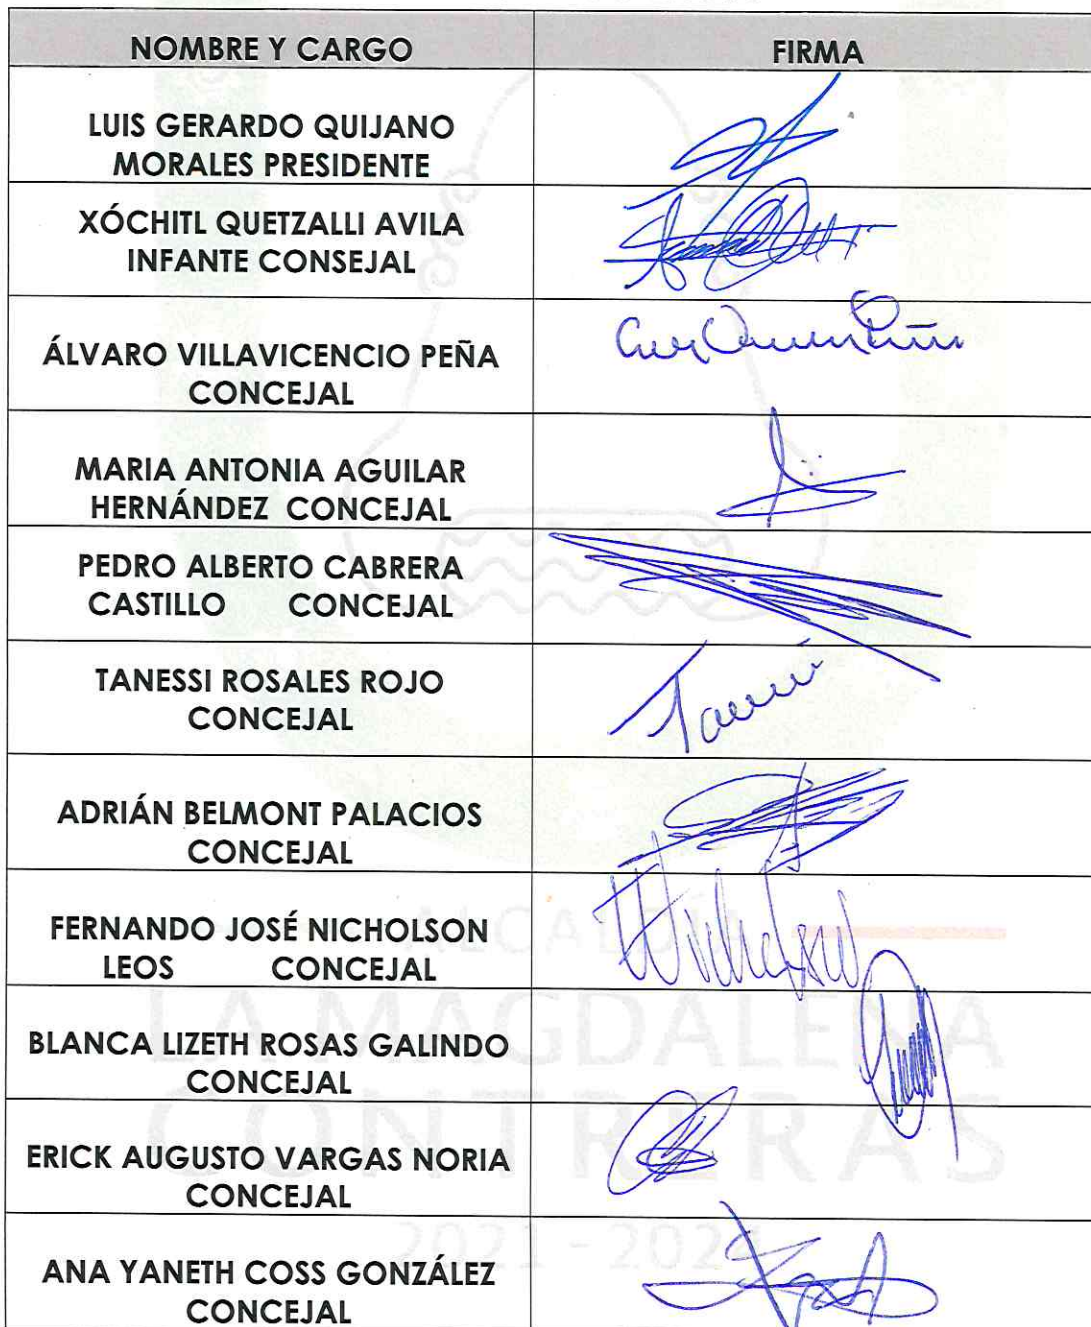 NOMBRE Y CARGO FIRMA
LUIS GERARDO QUIJANO
MORALES PRESIDENTE
XÓCHITL QUETZALLI AVILA
INFANTE CONSEJAL
ÁLVARO VILLAVICENCIO PEÑA
CONCEJAL
MARIA ANTONIA AGUILAR
HERNÁNDEZ CONCEJAL
PEDRO ALBERTO CABRERA
CASTILLO CONCEJAL
TANESSI ROSALES ROJO
CONCEJAL
ADRIÁN BELMONT PALACIOS
CONCEJAL
FERNANDO JOSÉ NICHOLSON
LEOS CONCEJAL
BLANCA LIZETH ROSAS GALINDO
CONCEJAL
ERICK AUGUSTO VARGAS NORIA
CONCEJAL
ANA YANETH COSS GONZÁLEZ
CONCEJAL
ALCALDÍA
LA MAGDALENA
CONTRERAS
2021 - 2024